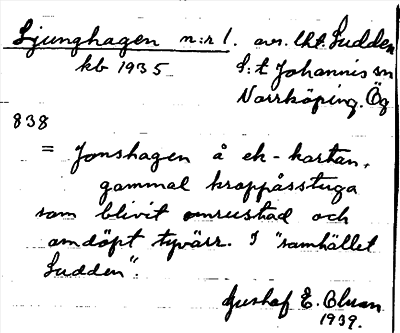 Ljunghagen n:r 1. avs. lht. Sudden
kb 1935 S:t Johannis sn
Norrköping. Ög
838
= Jonshagen å ek-kartan,
gammal kroppåsstuga
som blivit omrustad och
omdöpt tyvärr. I "samhället
Sudden".
Gustaf E. Olsson
1939.